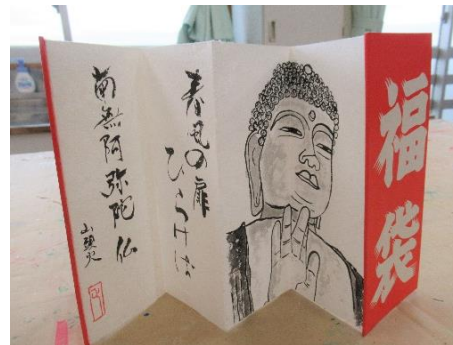 福袋
春風の扉
ひらけば
南無阿弥陀仏
山頭火